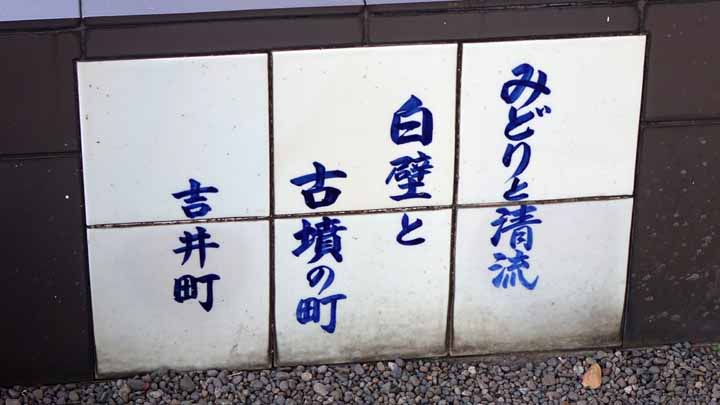 みどりと清流
白壁と
古墳の町
吉井町